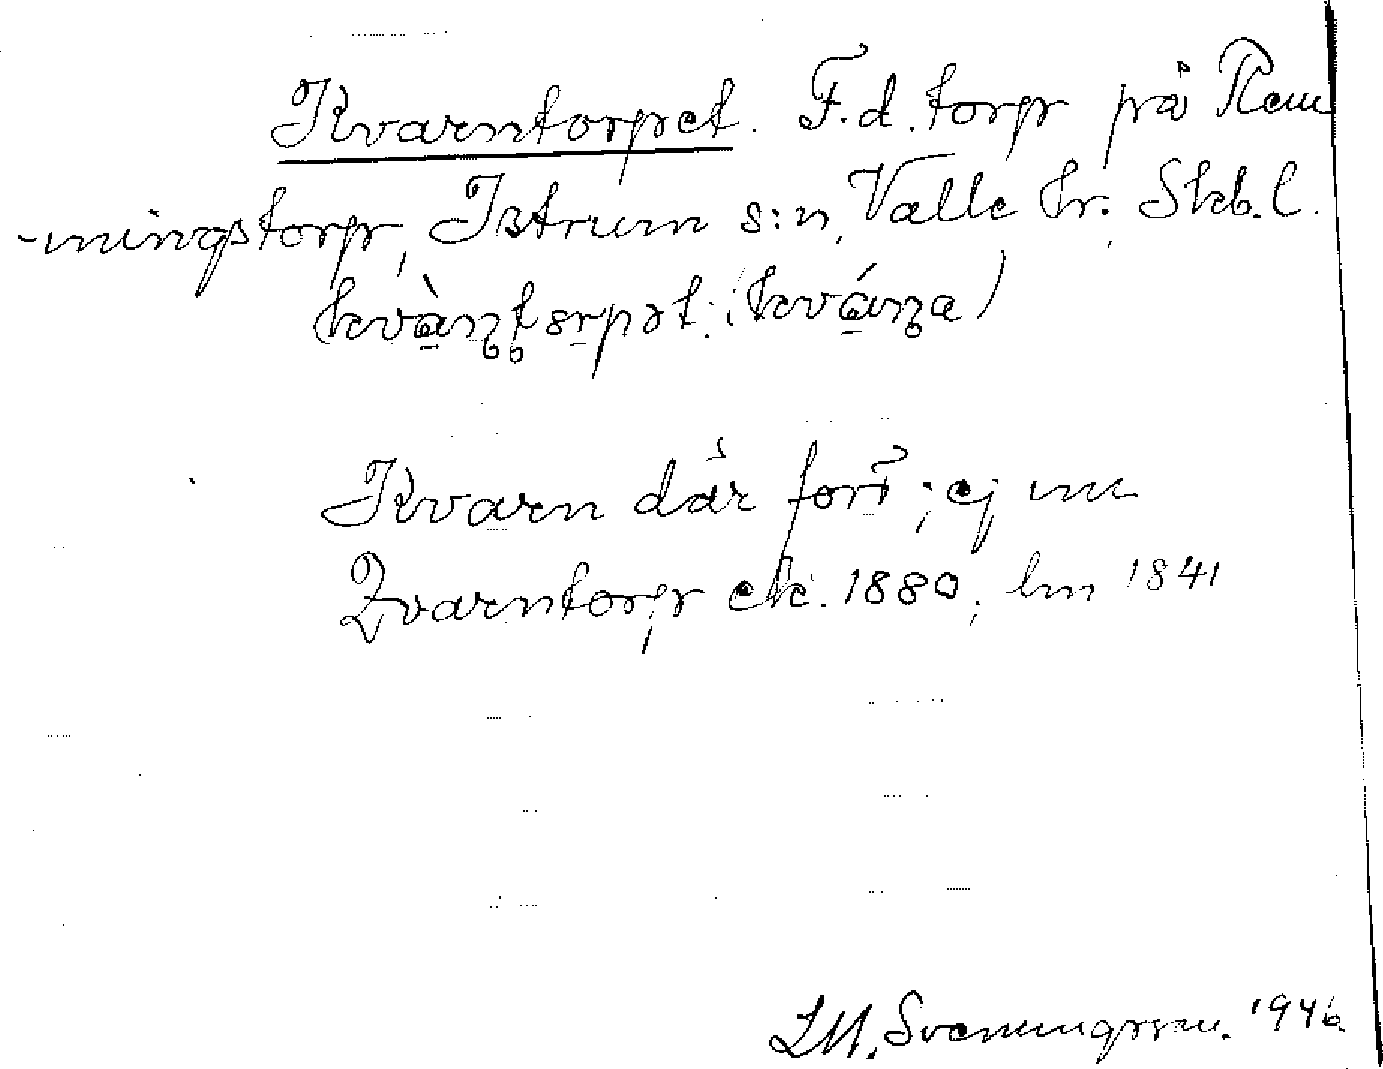 Kvarntorpet. F.d. torp på Rem
-mingstorp, Istrum s:n, Valle hr. Skb. l.
kvàṇṭərpət. (kváṇa)
Kvarn där förr; ej nu
Qvarntorp ek. 1880, lm 1841
LM. Svenungsson. 1946